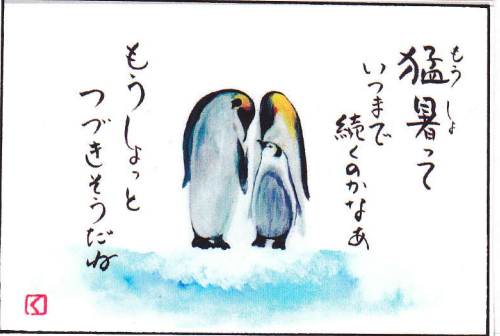 もうしょ
猛暑って
いつまで
続くのかなあ
もうしょっと
つづきそうだね
く